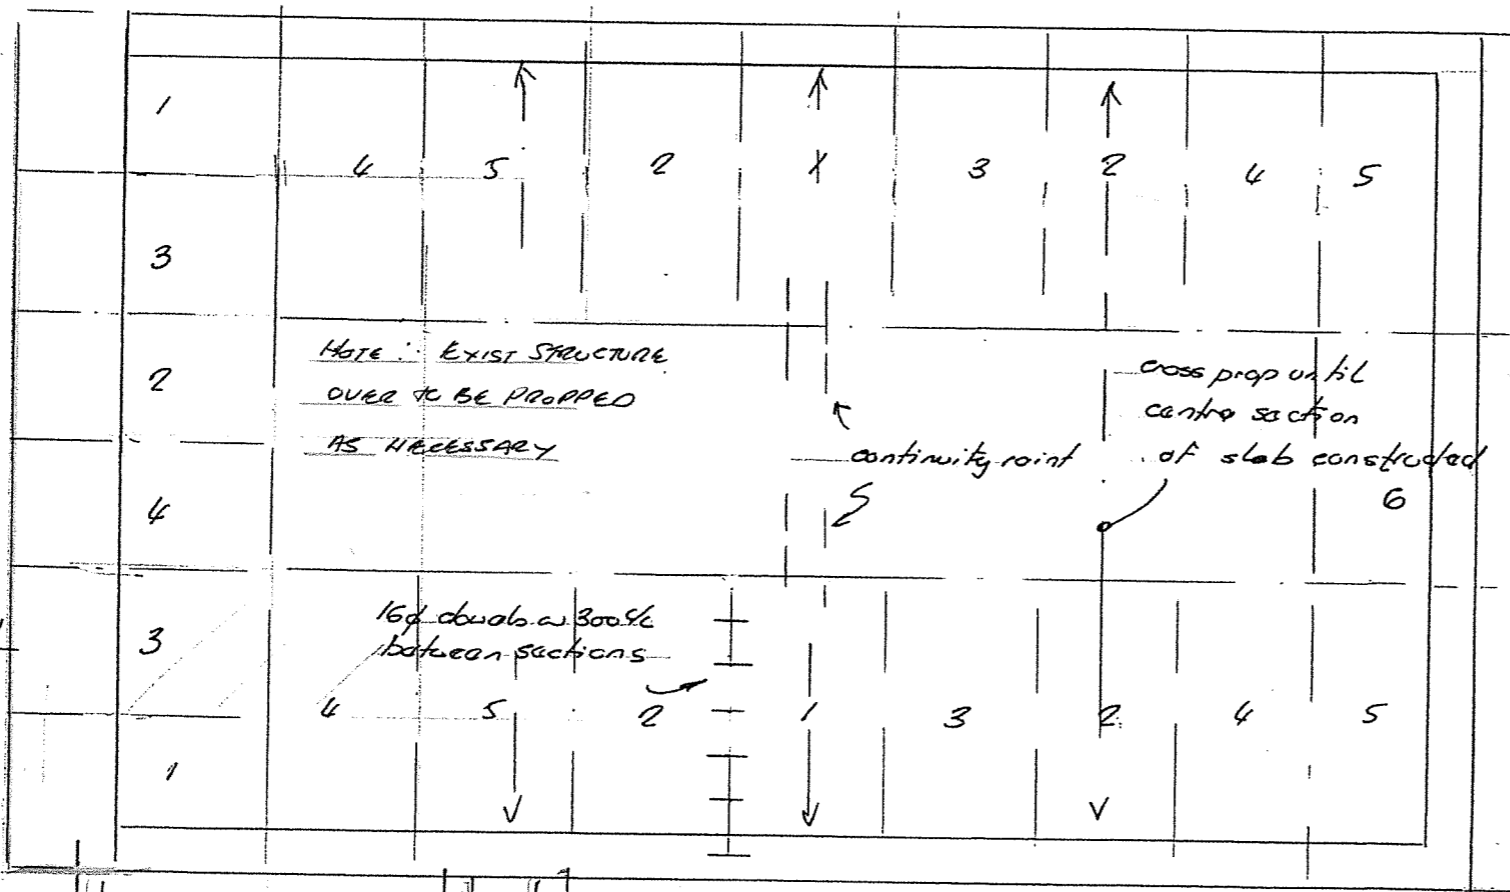 1
4 5 2 1 3 2 4 5
3
NOTE : EXIST STRUCTURE
OVER TO BE PROPPED
AS NECESSARY
2
cross prop until
centre section
of slab constructed
continuity joint
6
4
16ϕ dowels @ 300 c/c
between sections
3
4 5 2 1 3 2 4 5
1